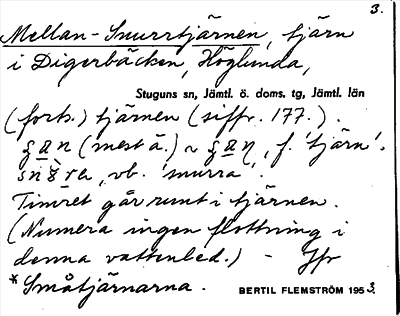 3.
Mellan-Snurrtjärnen, tjärn
i Digerbäcken, Höglunda,
Stuguns sn, Jämtl. ö. doms. tg, Jämtl. län
(forts.) tjärnen (siffr. 177.).
(mest ä.) ~ f. 'tjärn'.
vb. 'snurra'.
Timret går runt i tjärnen.
(Numera ingen flottning i
denna vattenled.) - Jfr
*Småtjärnarna.
BERTIL FLEMSTRÖM 1953.